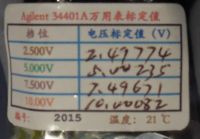 Agilent 34401A万用表标定值
电压标定值（V）
2.500V 2.49774
5.000V 5.00235
7.500V 7.49671
10.00V 10.00082
编号: 2015 温度: 21℃